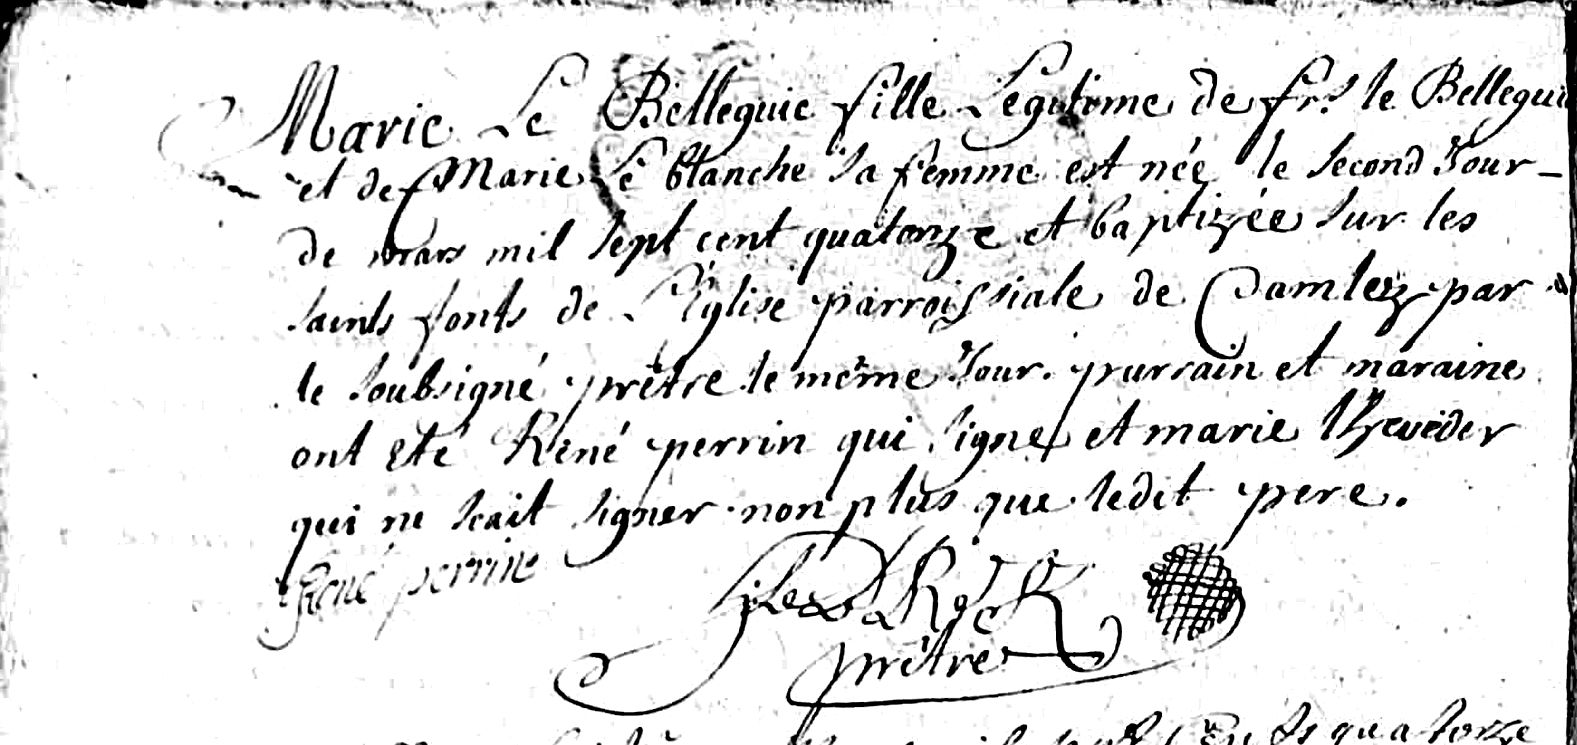 Marie Le Belleguic fille Legitime de fr. le Bellegui
et de Marie Le blanche sa femme est née le second Jour –
de mars mil sept cent quatorze et baptizée sur les
saints fonts de L'Eglise parroissiale de Camlez par
le soubsigné prêtre le même Jour. parrain et maraine
ont eté René perrin qui signe et marie Thveder
qui ne scait signer non plus que ledit pere.
René perrin
prêtre
quatorze